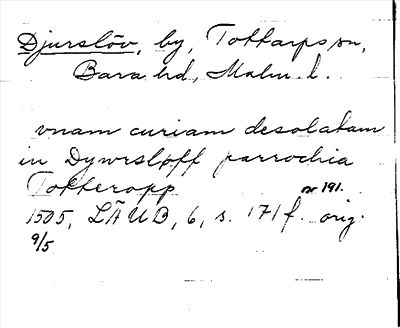 Djurslöv, by, Tottarps sn,
Bara hd, Malm. l.
vnam curiam desolatam
in Dywrsløff parrochia
Totteropp nr 191.
1505, LÄUB, 6, s. 171 f. orig.
9/5